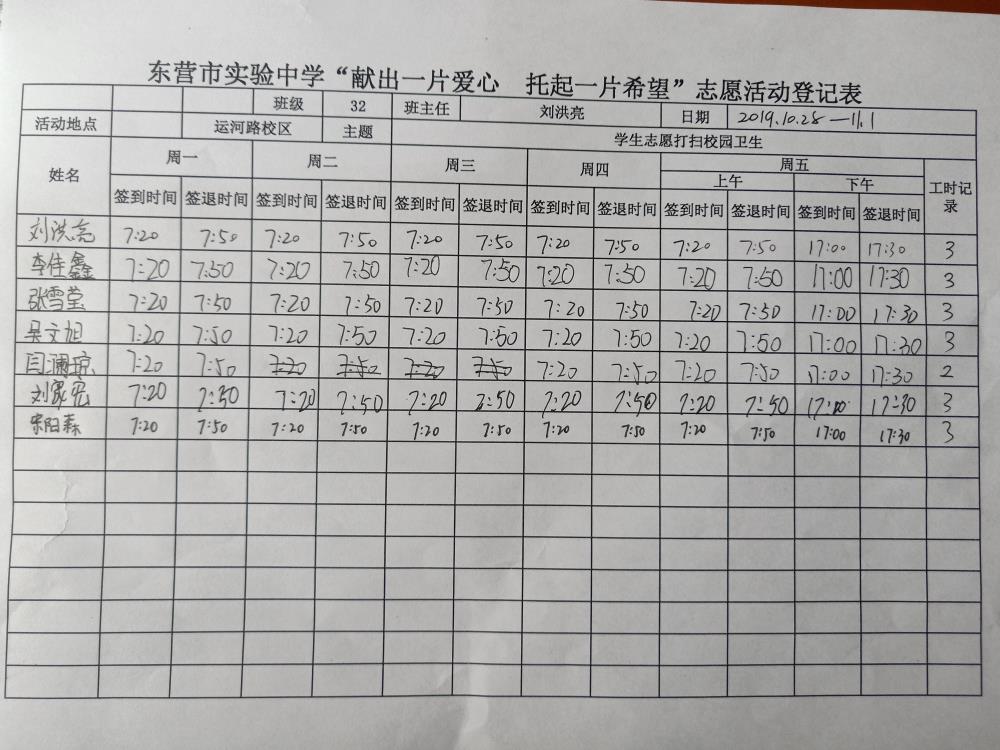 东营市实验中学“献出一片爱心 托起一片希望”志愿活动登记表
班级 32 班主任 刘洪亮 日期 2019.10.28—11.1
活动地点 运河路校区 主题 学生志愿打扫校园卫生
姓名 周一 周二 周三 周四 周五 工时记录
上午 下午
签到时间 签退时间 签到时间 签退时间 签到时间 签退时间 签到时间 签退时间 签到时间 签退时间 签到时间 签退时间
刘洪亮 7:20 7:50 7:20 7:50 7:20 7:50 7:20 7:50 7:20 7:50 17:00 17:30 3
李佳鑫 7:20 7:50 7:20 7:50 7:20 7:50 7:20 7:50 7:20 7:50 17:00 17:30 3
张雪莹 7:20 7:50 7:20 7:50 7:20 7:50 7:20 7:50 7:20 7:50 17:00 17:30 3
吴文旭 7:20 7:50 7:20 7:50 7:20 7:50 7:20 7:50 7:20 7:50 17:00 17:30 3
闫澜琼 7:20 7:50 7:20 7:50 7:20 7:50 7:20 7:50 7:20 7:50 17:00 17:30 2
刘家宏 7:20 7:50 7:20 7:50 7:20 7:50 7:20 7:50 7:20 7:50 17:00 17:30 3
7:20 7:50 7:20 7:50 7:20 7:50 7:20 7:50 7:20 7:50 17:00 17:30 3